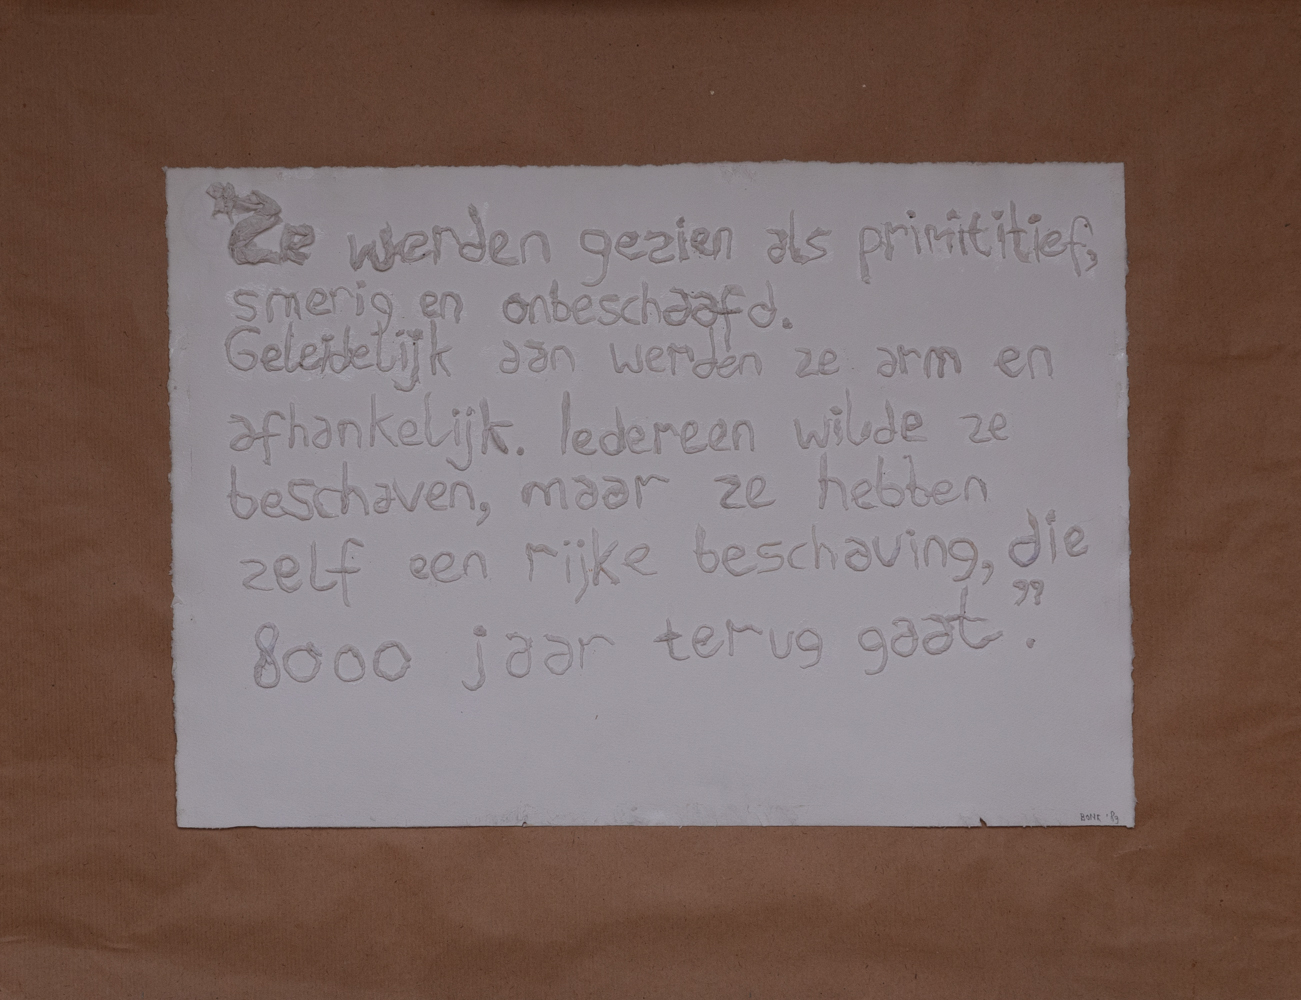 "Ze werden gezien als primititief,
smerig en onbeschaafd.
Geleidelijk aan werden ze arm en
afhankelijk. Iedereen wilde ze
beschaven, maar ze hebben
zelf een rijke beschaving, die
8000 jaar terug gaat".
'89